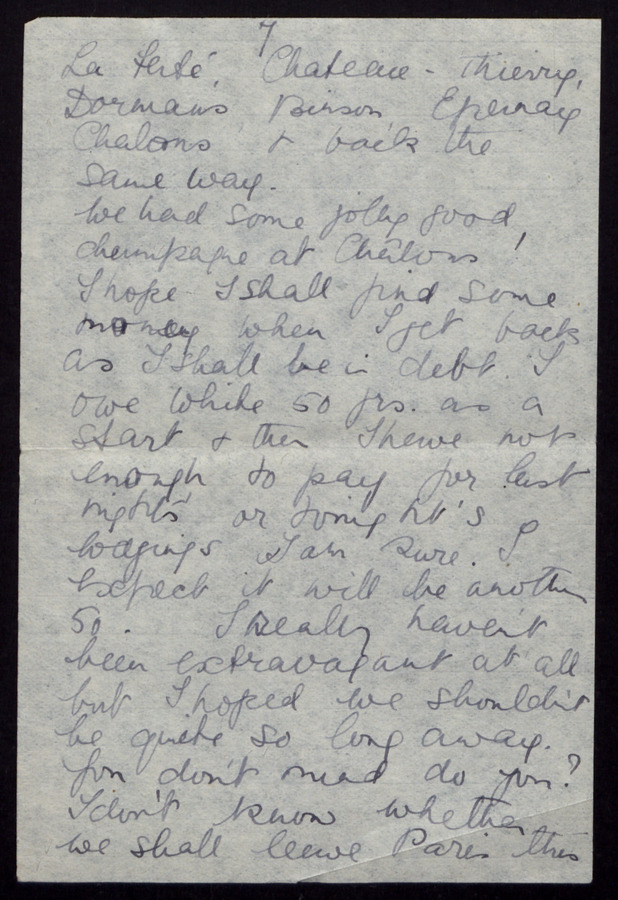 7
La Ferté, Chateau-Thierry,
Dormans Binson Epernay
Chalons & back the
same way.
We had some jolly good
champagne at Châlons!
I hope I shall find some
money when I get back
as I shall be in debt. I
owe White 50 frs. as a
start & then I have not
enough to pay for last
night's or tonight's
lodgings I am sure. I
expect it will be another
50. I really haven't
been extravagant at all
but I hoped we shouldn't
be quite so long away.
You don't mind do you?
I don't know whether
we shall leave Paris this